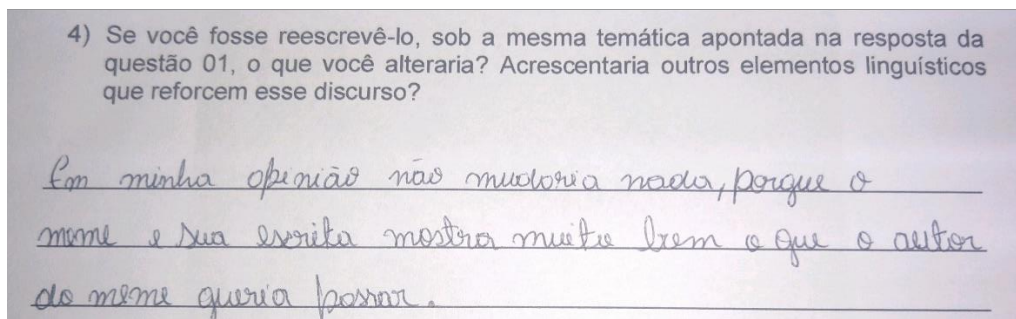 4) Se você fosse reescrevê-lo, sob a mesma temática apontada na resposta da
questão 01, o que você alteraria? Acrescentaria outros elementos linguísticos
que reforcem esse discurso?
Em minha opinião não mudaria nada, porque o
meme e sua escrita mostra muito bem o que o autor
do meme queria passar.